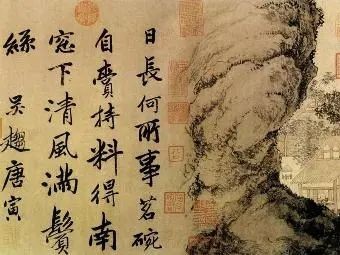 日長何所事茗碗
自賫持料得南
窓下清風滿鬢
絲 吳趨唐寅